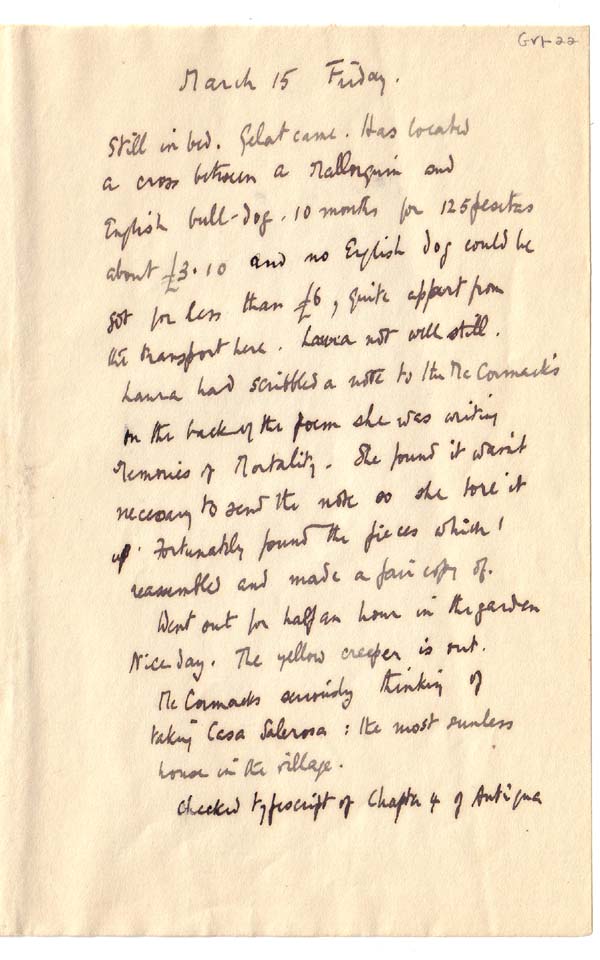 Grf-22
March 15 Friday.
Still in bed. Gelat came. Has located
a cross between a Mallorquin and
English bull-dog. 10 months for 125 pesetas
about £3.10 and no English dog could be
got for less than £6, quite appart from
the transport here. Laura not well still.
Laura had scribbled a note to the McCormack's
on the back of the poem she was writing
Memories of Mortality. She found it wasn't
necessary to send the note so she tore it
up. Fortunately found the pieces which I
reassembled and made a fair copy of.
Went out for half an hour in the garden
Nice day. The yellow creeper is out.
McCormacks seriously thinking of
taking Casa Salerosa: the most sunless
house in the village.
Checked typescript of Chapter 4 of Antigua